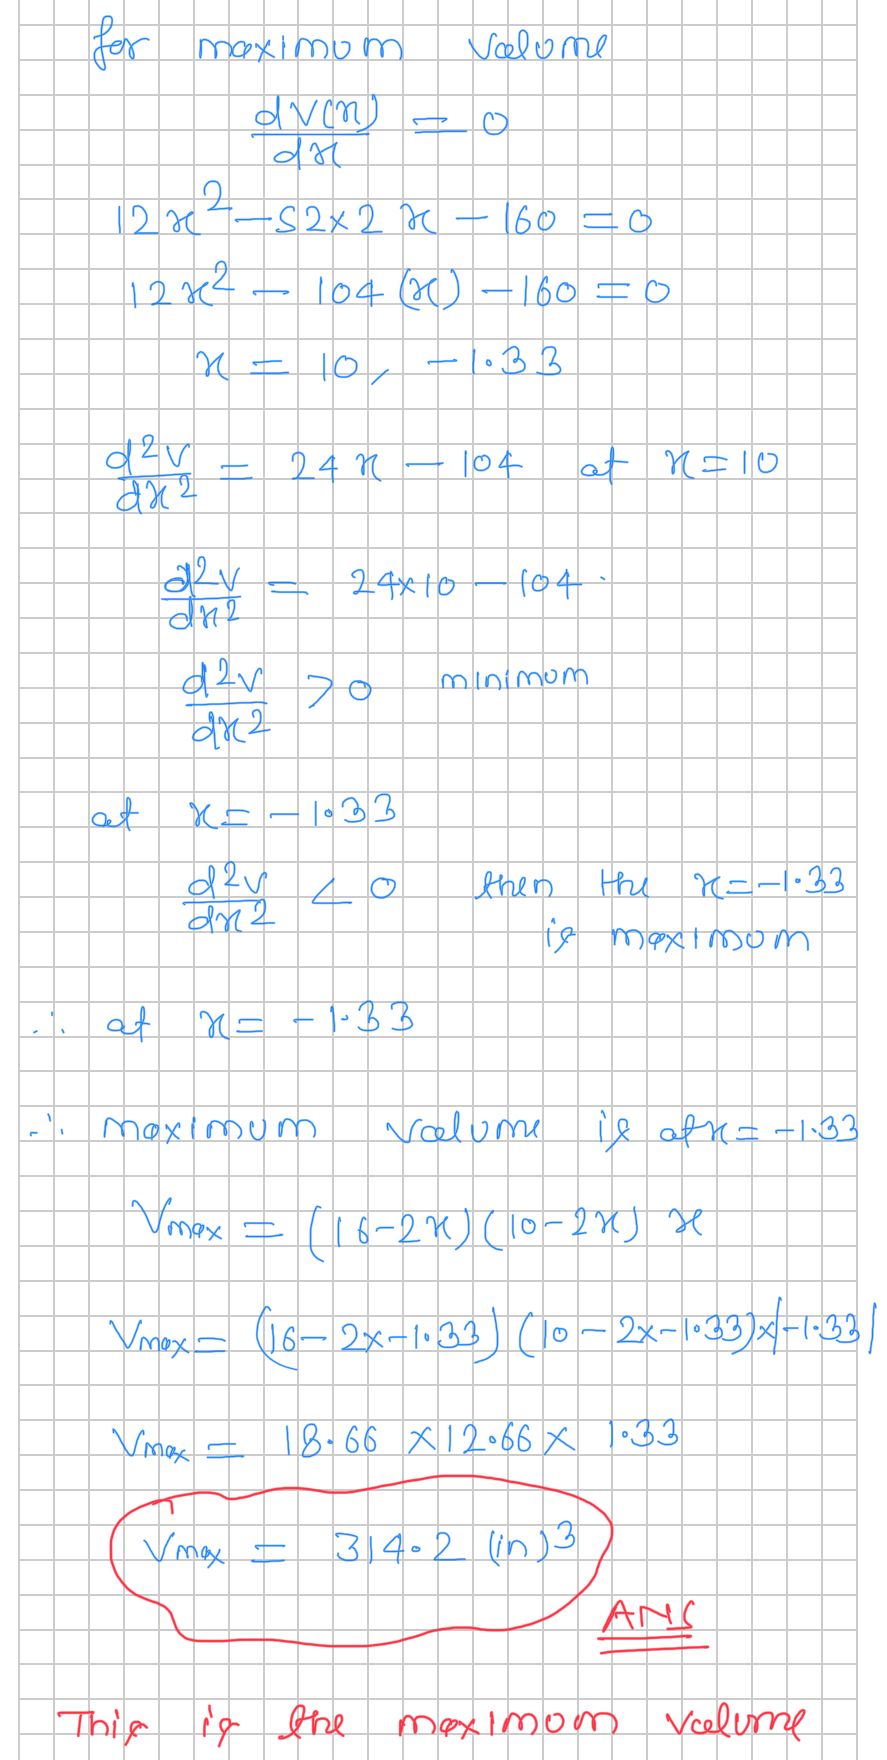 for maximum volume
dV(x)/dx = 0
12x² - 52×2 x - 160 = 0
12x² - 104(x) - 160 = 0
x = 10, -1.33
d²v/dx² = 24x - 104 at x=10
d²v/dx² = 24×10 - 104.
d²v/dx² > 0 minimum
at x = -1.33
d²v/dx² < 0 then the x = -1.33
is maximum
∴ at x = -1.33
∴ maximum volume is at x = -1.33
Vmax = (16-2x)(10-2x) x
Vmax = (16-2×-1.33)(10-2×-1.33)×|-1.33|
Vmax = 18.66 ×12.66× 1.33
Vmax = 314.2 (in)³
ANS
This is the maximum volume